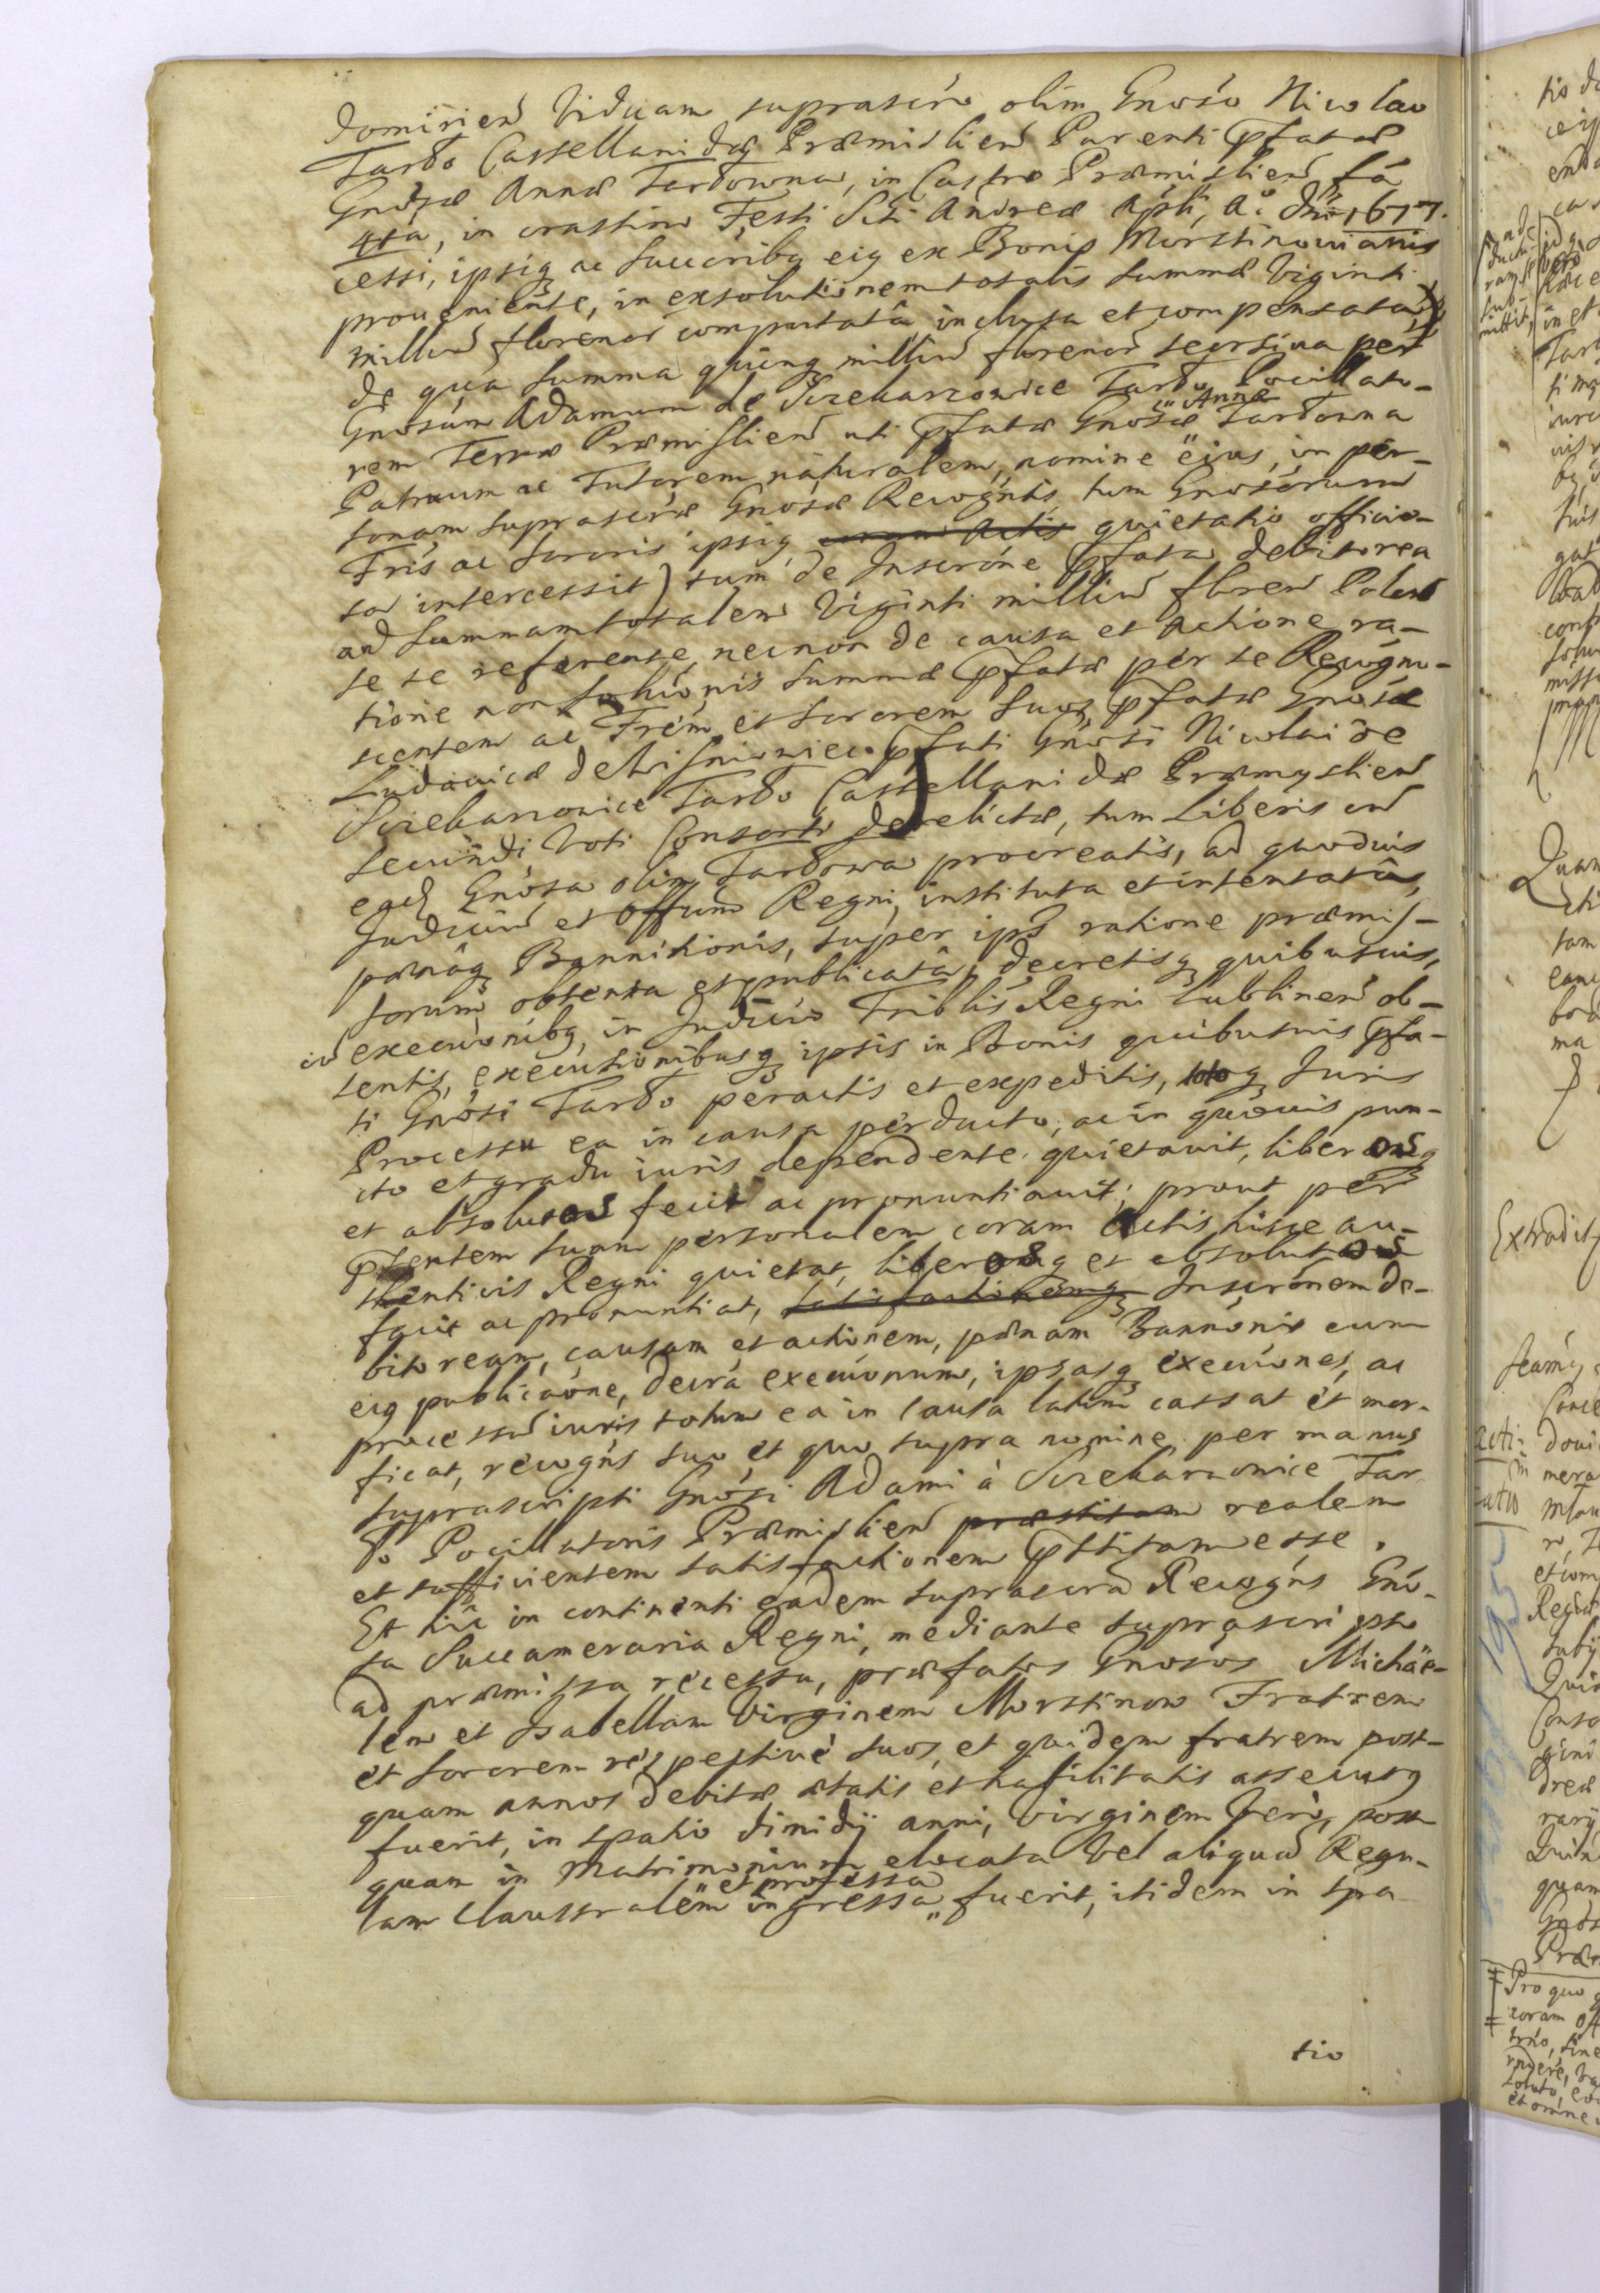 domirien Viduam suprascro olim Gnoso Nicolao
Tarło Castellanidæ Præmislien Parenti pfatæ
Gnosæ Annæ Tarłowna, in Castro Præmislien fa
4ta, in crastino Festi Scti Andreæ Apli, Ao Dni 1677.
cessi, ipsiq ac succribq eiq ex Bonis Morstinovianis
proueniente, in exsolutionem totalis summæ Viginti
milliu florenor computata inclusa et compensata,
de qua summa quinq milliu florenor seorsiua per
Gnosum Adamum de Sczekarzowice Tarło Pocillato-
rem Terræ Præmislien uti pfatæ Gnosæ Annæ Tarłowna
Patruum ac Tutorem naturalem, nomine eius, in per-
sonam suprascræ Gnosæ Recogntis tum Gnosorum
Fris ac sororis ipsiq coram Actis quietatio officio-
sa intercessit) tum de Inscrone pfata debitorea
ad summam totalem Viginti milliu floren Polon
se se referente, necnon de causa et actione ra-
tione non solutionis summæ pfatæ per se Recogno-
scentem ac Frem et sororem suos, pfatæ Gnosæ
Ludouicæ de Wisniowiec pfati Gnosi Nicolai de
Sczekarzowice Tarło Castellanidæ Præmyslien
secundi Voti Consorti derelictæ, tum Liberis cu
eade Gnosa olim Tarłowa procreatis, ad quoduis
Judiciu et Offum Regni, instituta et intentata,
pænaq Bannitionis, super ips ratione præmis-
sorum obtenta et publicata, decretisq quibusuis,
in execuionibq, in Judicio Triblis Regni Lublinen ob-
tentis, executionibusq ipsis in Bonis quibusuis pfa-
ti Gnosi Tarło peractis et expeditis, totoq Juris
Processu ea in causa perducto, ac in quouis pun-
cto et gradu iuris dependente quietauit, liberosq
et absolutos fecit ac pronuntiauit; prout per
pntem suam personalem coram Actis hisce au-
thenticis Regni quietat, liberosq et absolutos
facit ac pronuntiat, satisfactionemq Inscronem de-
bitoream, causam et actionem, pænam Bannonis cum
eiq publicaone, decra execuionum, ipsasq execuiones, ac
processu iuris totum ea in causa latum cassat et mor-
ficat, recogns suo et quo supra nomine per manus
suprascripti Gnosi Adami à Sczekarzowice Tar
ło Pocillatoris Præmislien præstitam realem
et sufficientem satisfactionem pstitam esse.
Et hic in continenti eadem suprascra Recogns Gno-
sa Succameraria Regni, mediante suprascripto
ad præmissa recessu, præfatos Gnosos Michäe-
lem et Isabellam Virginem Morstinow Fratrem
et sororem respectiuè suos, et quidem fratrem post-
quam annos debitæ ætatis et habilitatis assecutq
fuerit, in spatio dimidij anni, Virginem Verò, post
quam in Matrimonium elocata Vel aliqua Regu-
lam Claustralem ingressa et professa fuerit, itidem in spa
tio